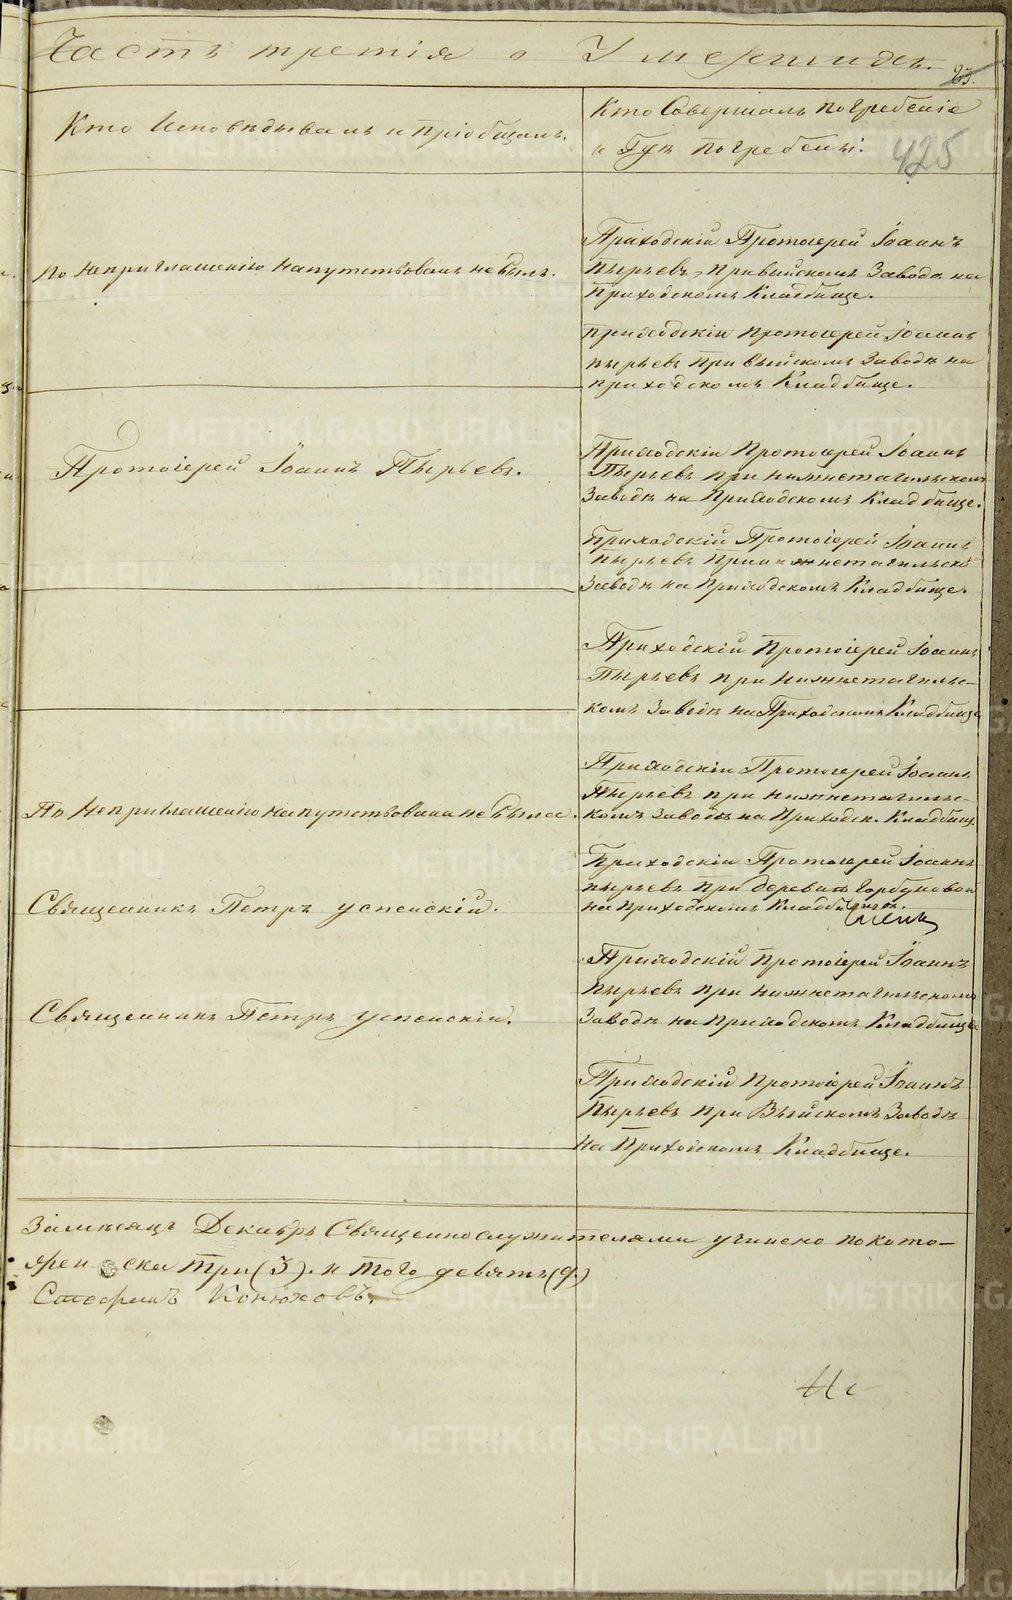 Часть третія о Умершихъ.
23.
425
Кто Исповѣдывалъ и Пріобщалъ.
Кто Совершалъ Погребеніе
и Гдѣ Погребены.
По неприглашенію напутствованъ не былъ.
Приходскій Протоіерей Іоаннъ
Пырьевъ, При Выйскомъ Заводѣ на
Приходскомъ Кладбище.
Приходскій Протоіерей Іоаннъ
Пырьевъ При Выйскомъ Заводѣ на
приходскомъ Кладбище.
Протоіерей Іоаннъ Пырьевъ.
Приходскій Протоіерей Іоаннъ
Пырьевъ при нижнетагильскомъ
Заводѣ на Приходскомъ Кладбище.
Приходскій Протоіерей Іоаннъ
Пырьевъ При нижнетагильскѣ
Заводѣ на Приходскомъ Кладбище.
Приходскій Протоіерей Іоаннъ
Пырьевъ при нижнетагильс-
комъ Заводѣ на Приходскомъ Кладбище
По неприглашенію напутствована не была.
Приходскій Протоіерей Іоаннъ
Пырьевъ при нижнетагильс-
комъ Заводѣ на Приходск. Кладбищ.
Священникъ Петръ Успенскій.
Приходскій Протоіерей Іоаннъ
пырьевъ При деревнѣ Горбуновой
на Приходскомъ Кладбище.
Священникъ Петръ Успенскій.
Приходскій Протоіерей Іоаннъ
Пырьевъ при нижнетагильскомъ
Заводѣ на Приходскомъ Кладбище
Приходскій Протоіерей Іоаннъ
Пырьевъ при Выйскомъ Заводѣ
на Приходскомъ Кладбище.
За мѣсяцъ Декабрь Священнослужителями учинено по кото-
жен ска три (3). и того девять (9.)
Стефанъ Конюховъ.
METRIKI.GASO-URAL.RU